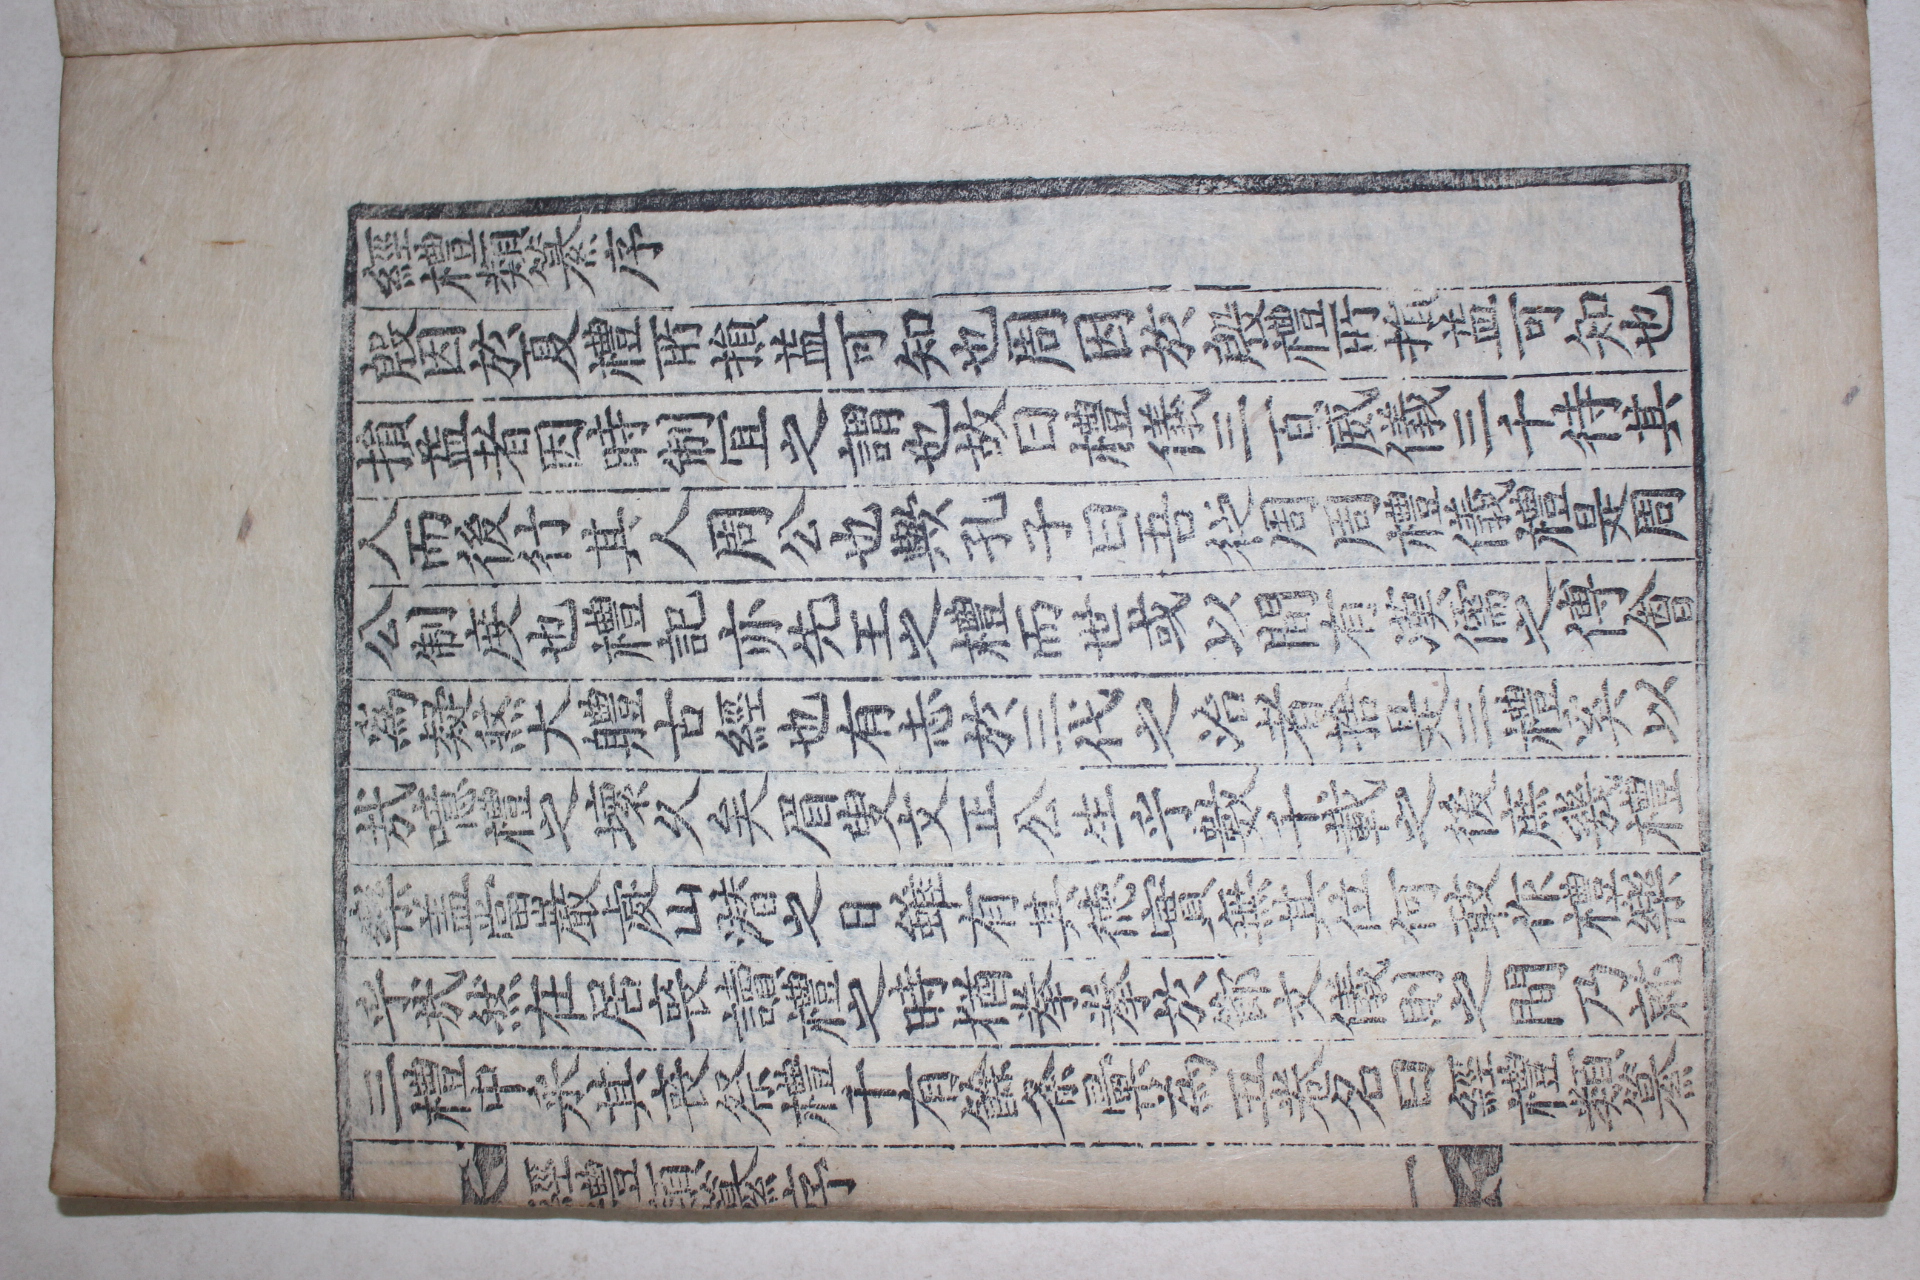 經禮類纂序
殷因於夏禮所損益可知也周因於殷禮所損益可知也
損益者因時制冝之謂也故曰禮儀三百威儀三千待其
人而後行其人周公也歟孔子曰吾從周周禮儀禮是周
公制度也禮記亦先王之禮而世或以間有漢儒之傅會
為疑然大軆古經也有志於三代之治者捨是三禮奚以
哉噫禮之壞久矣眉叟文正公生乎數千載之後庶幾禮
樂盖當嚴處山潛之日雖有其德實無其位何敢作禮樂
乎哉然在居喪讀禮之時猶拳拳於節文儀則之間乃就
三禮中采其喪祭禮千有餘条彙為五卷名曰經禮類纂
經禮類纂序
一